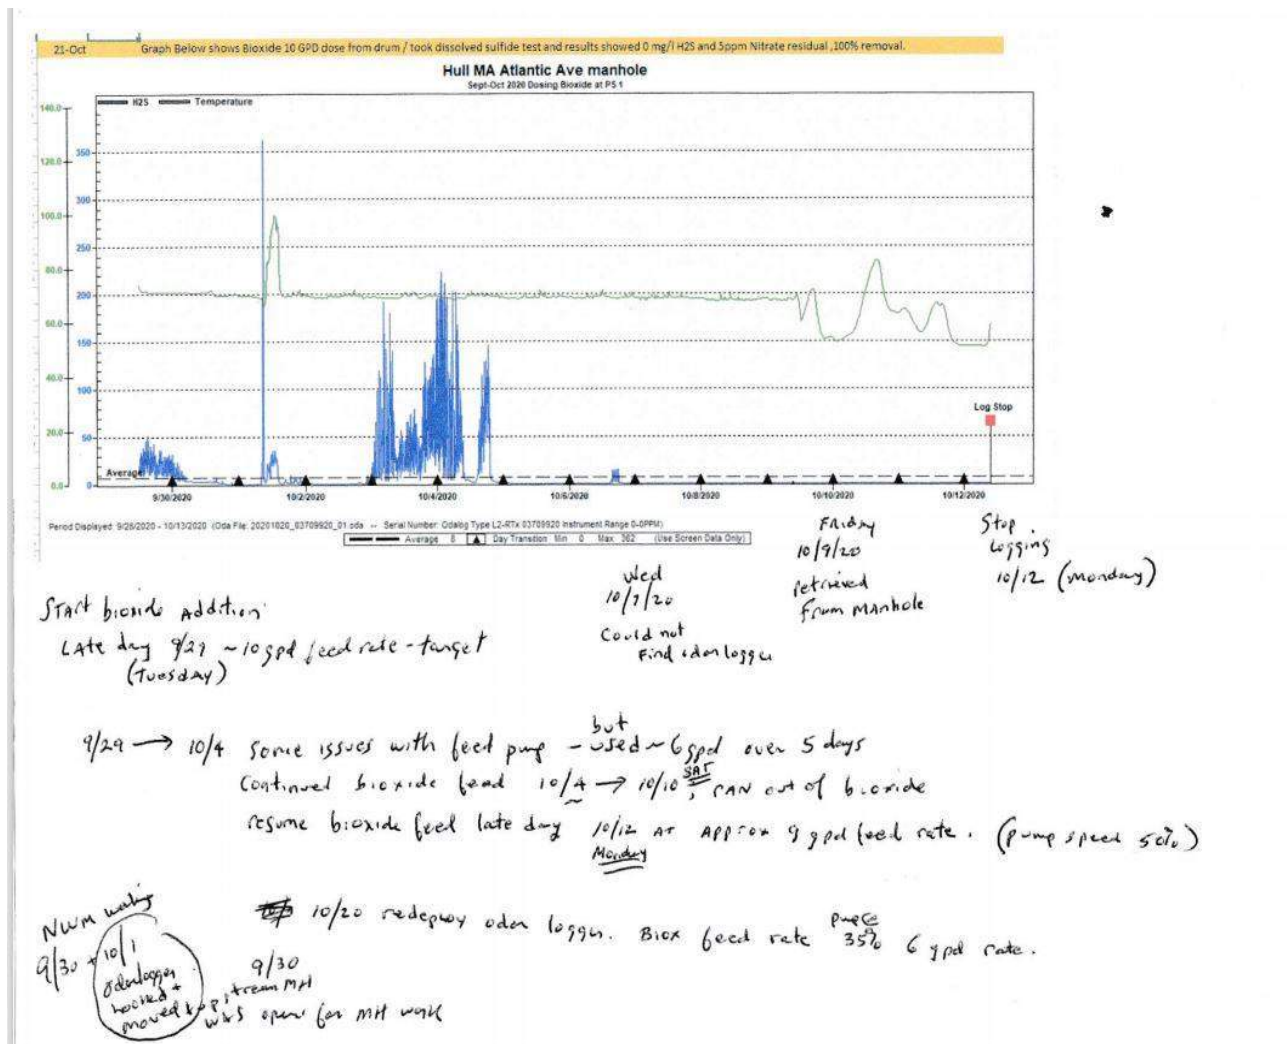 21-Oct Graph Below shows Bioxide 10 GPD dose from drum / took dissolved sulfide test and results showed 0 mg/l H2S and 5ppm Nitrate residual ,100% removal.
Hull MA Atlantic Ave manhole
Sept-Oct 2020 Dosing Bioxide at PS 1
H2S Temperature
140.0
120.0
100.0
80.0
60.0
40.0
20.0
0.0
350
300
250
200
150
100
50
0
Average
Log Stop
9/30/2020 10/2/2020 10/4/2020 10/6/2020 10/8/2020 10/10/2020 10/12/2020
Period Displayed: 9/28/2020 - 10/13/2020 (Oda File: 20201020_03709920_01.oda -- Serial Number: Odalog Type L2-RTx 03709920 Instrument Range 0-0PPM)
Average 8 Day Transition Min 0 Max 362 (Use Screen Data Only)
Friday
10/9/20
retrieved
from Manhole
Stop
Logging
10/12 (Monday)
Wed
10/7/20
Could not
Find odor logger
START bioxide Addition:
LAte day 9/29 ~10 gpd feed rate - target
(Tuesday)
9/29 → 10/4 Some issues with feed pump - but used ~ 6 gpd over 5 days
Continued bioxide feed 10/4 → 10/10 SAT, RAN out of bioxide
resume bioxide feed late day 10/12 At Approx 9 gpd feed rate. (pump speed 50%)
Monday
10/20 redeploy odor logger. Biox feed rate 35% 6 gpd rate.
NWM
9/30 + 10/1
odorlogger
moved to upstream MH
9/30
was open for MH work